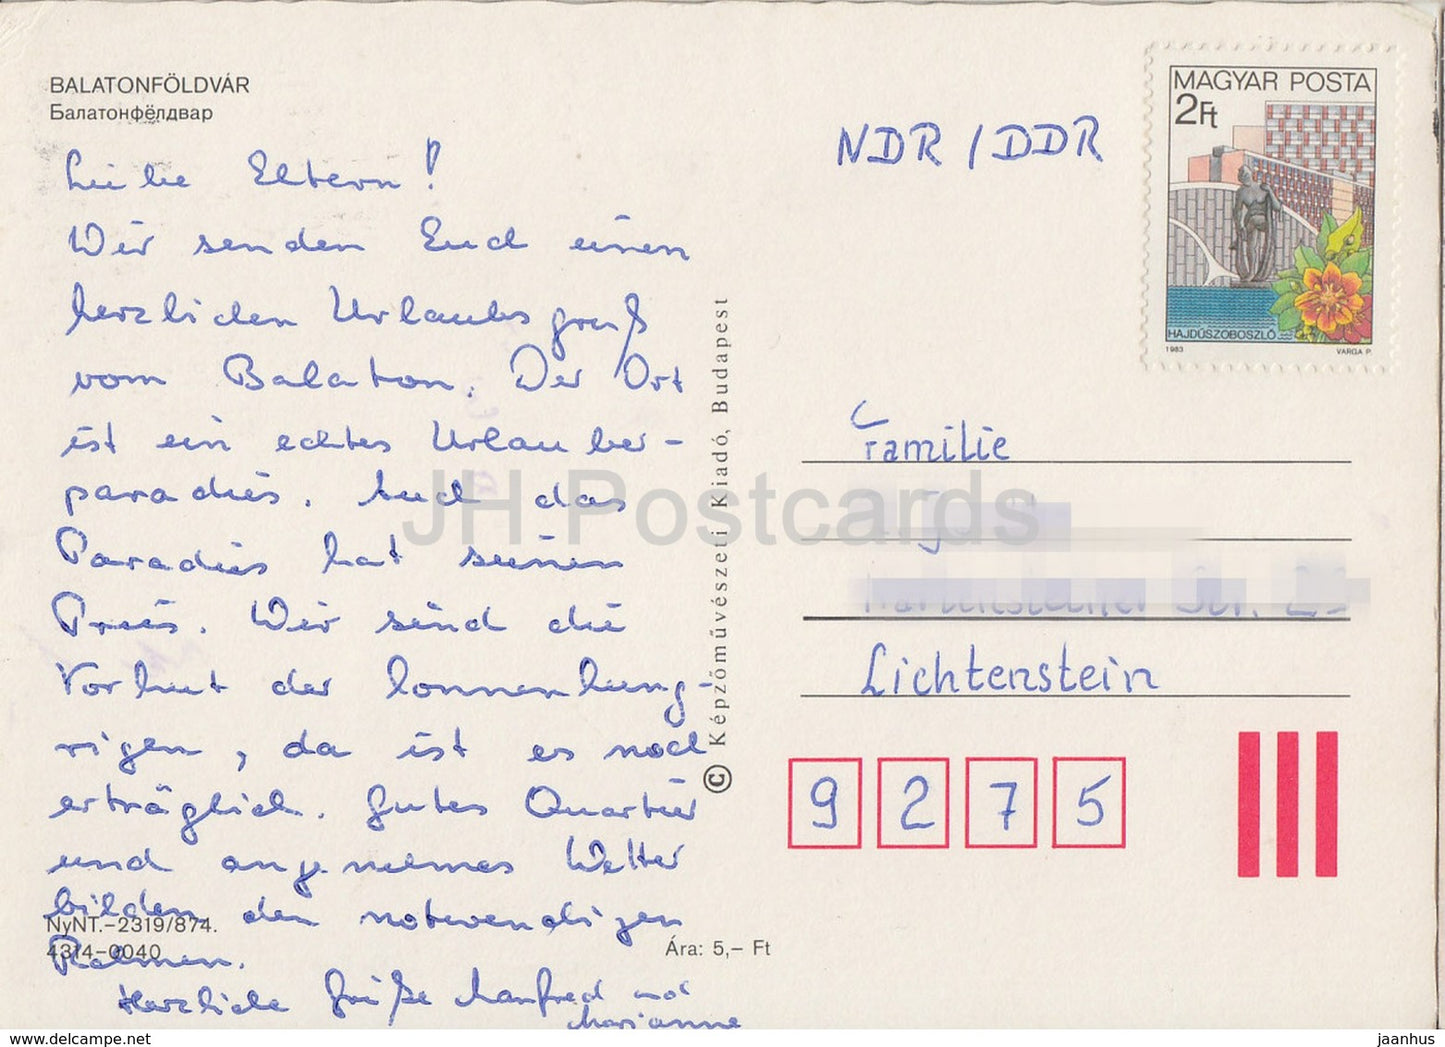 BALATONFÖLDVÁR
Балатонфёлдвар
Liebe Eltern!
Wir senden Euch einen
herzlichen Urlaubsgruß
vom Balaton. Der Ort
ist ein echtes Urlauber-
paradies. Auch das
Paradies hat seinen
Preis. Wir sind die
Vorhut der Sonnenhung-
rigen, da ist es noch
erträglich. Gutes Quartier
und angenehmes Wetter
bilden den notwendigen
Rahmen.
Herzliche Grüße Manfred und
Marianne
NyNT.-2319/874.
4314-0040
Ára: 5,- Ft
© Képzőművészeti Kiadó, Budapest
NDR / DDR
MAGYAR POSTA
2Ft
HAJDÚSZOBOSZLÓ
1983 VARGA P.
Familie
Str.
Lichtenstein
9 2 7 5
JH Postcards
delcampe.net
jaanhus